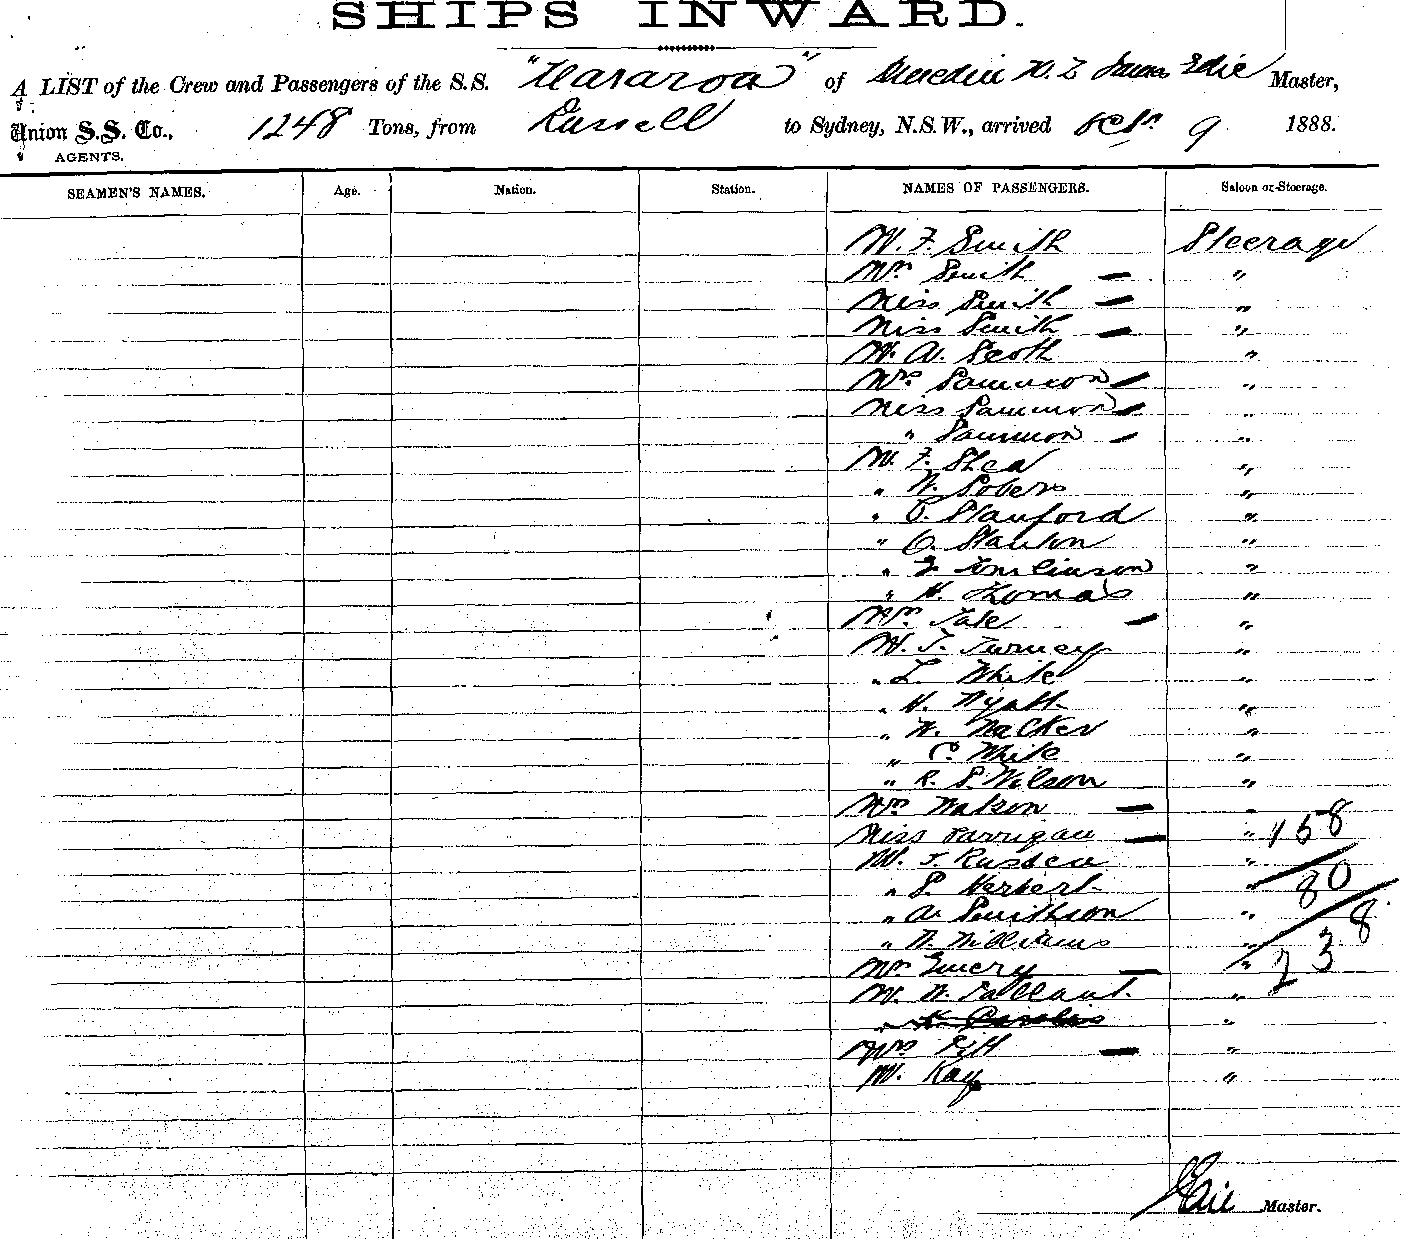 SHIPS INWARD.
A LIST of the Crew and Passengers of the S.S. "Wararoa" of Dunedin N.Z James Edie Master,
Union S.S. Co., 1248 Tons, from Russell to Sydney, N.S.W., arrived Septr 9 1888.
AGENTS.
SEAMEN'S NAMES. Age. Nation. Station. NAMES OF PASSENGERS. Saloon or Steerage.
M. F. Smith Steerage
Mrs Smith — "
Miss Smith — "
Miss Smith — "
M. A. Scott "
Mrs Sammon — "
Miss Sammon — "
" Sammon — "
M. F. Shea "
" W. Sobers "
" C. Stanford "
" C. Stanton "
" F. Tomlinson "
" H. Thomas "
Mrs Tate — "
M. T. Turney "
" L. White "
" H. Wyatt "
" W. Walker "
" C. White "
" R. S. Wilson "
Mrs Watson — "
Miss Farrigan — " 158
M. J. Rusden "
" S. Herbert " 80
" A. Smithson "
" W. Williams " 8
Mrs Emery — " 23
M. W. Tallant "
" "
Mrs — "
M. Kay "
Edie Master.